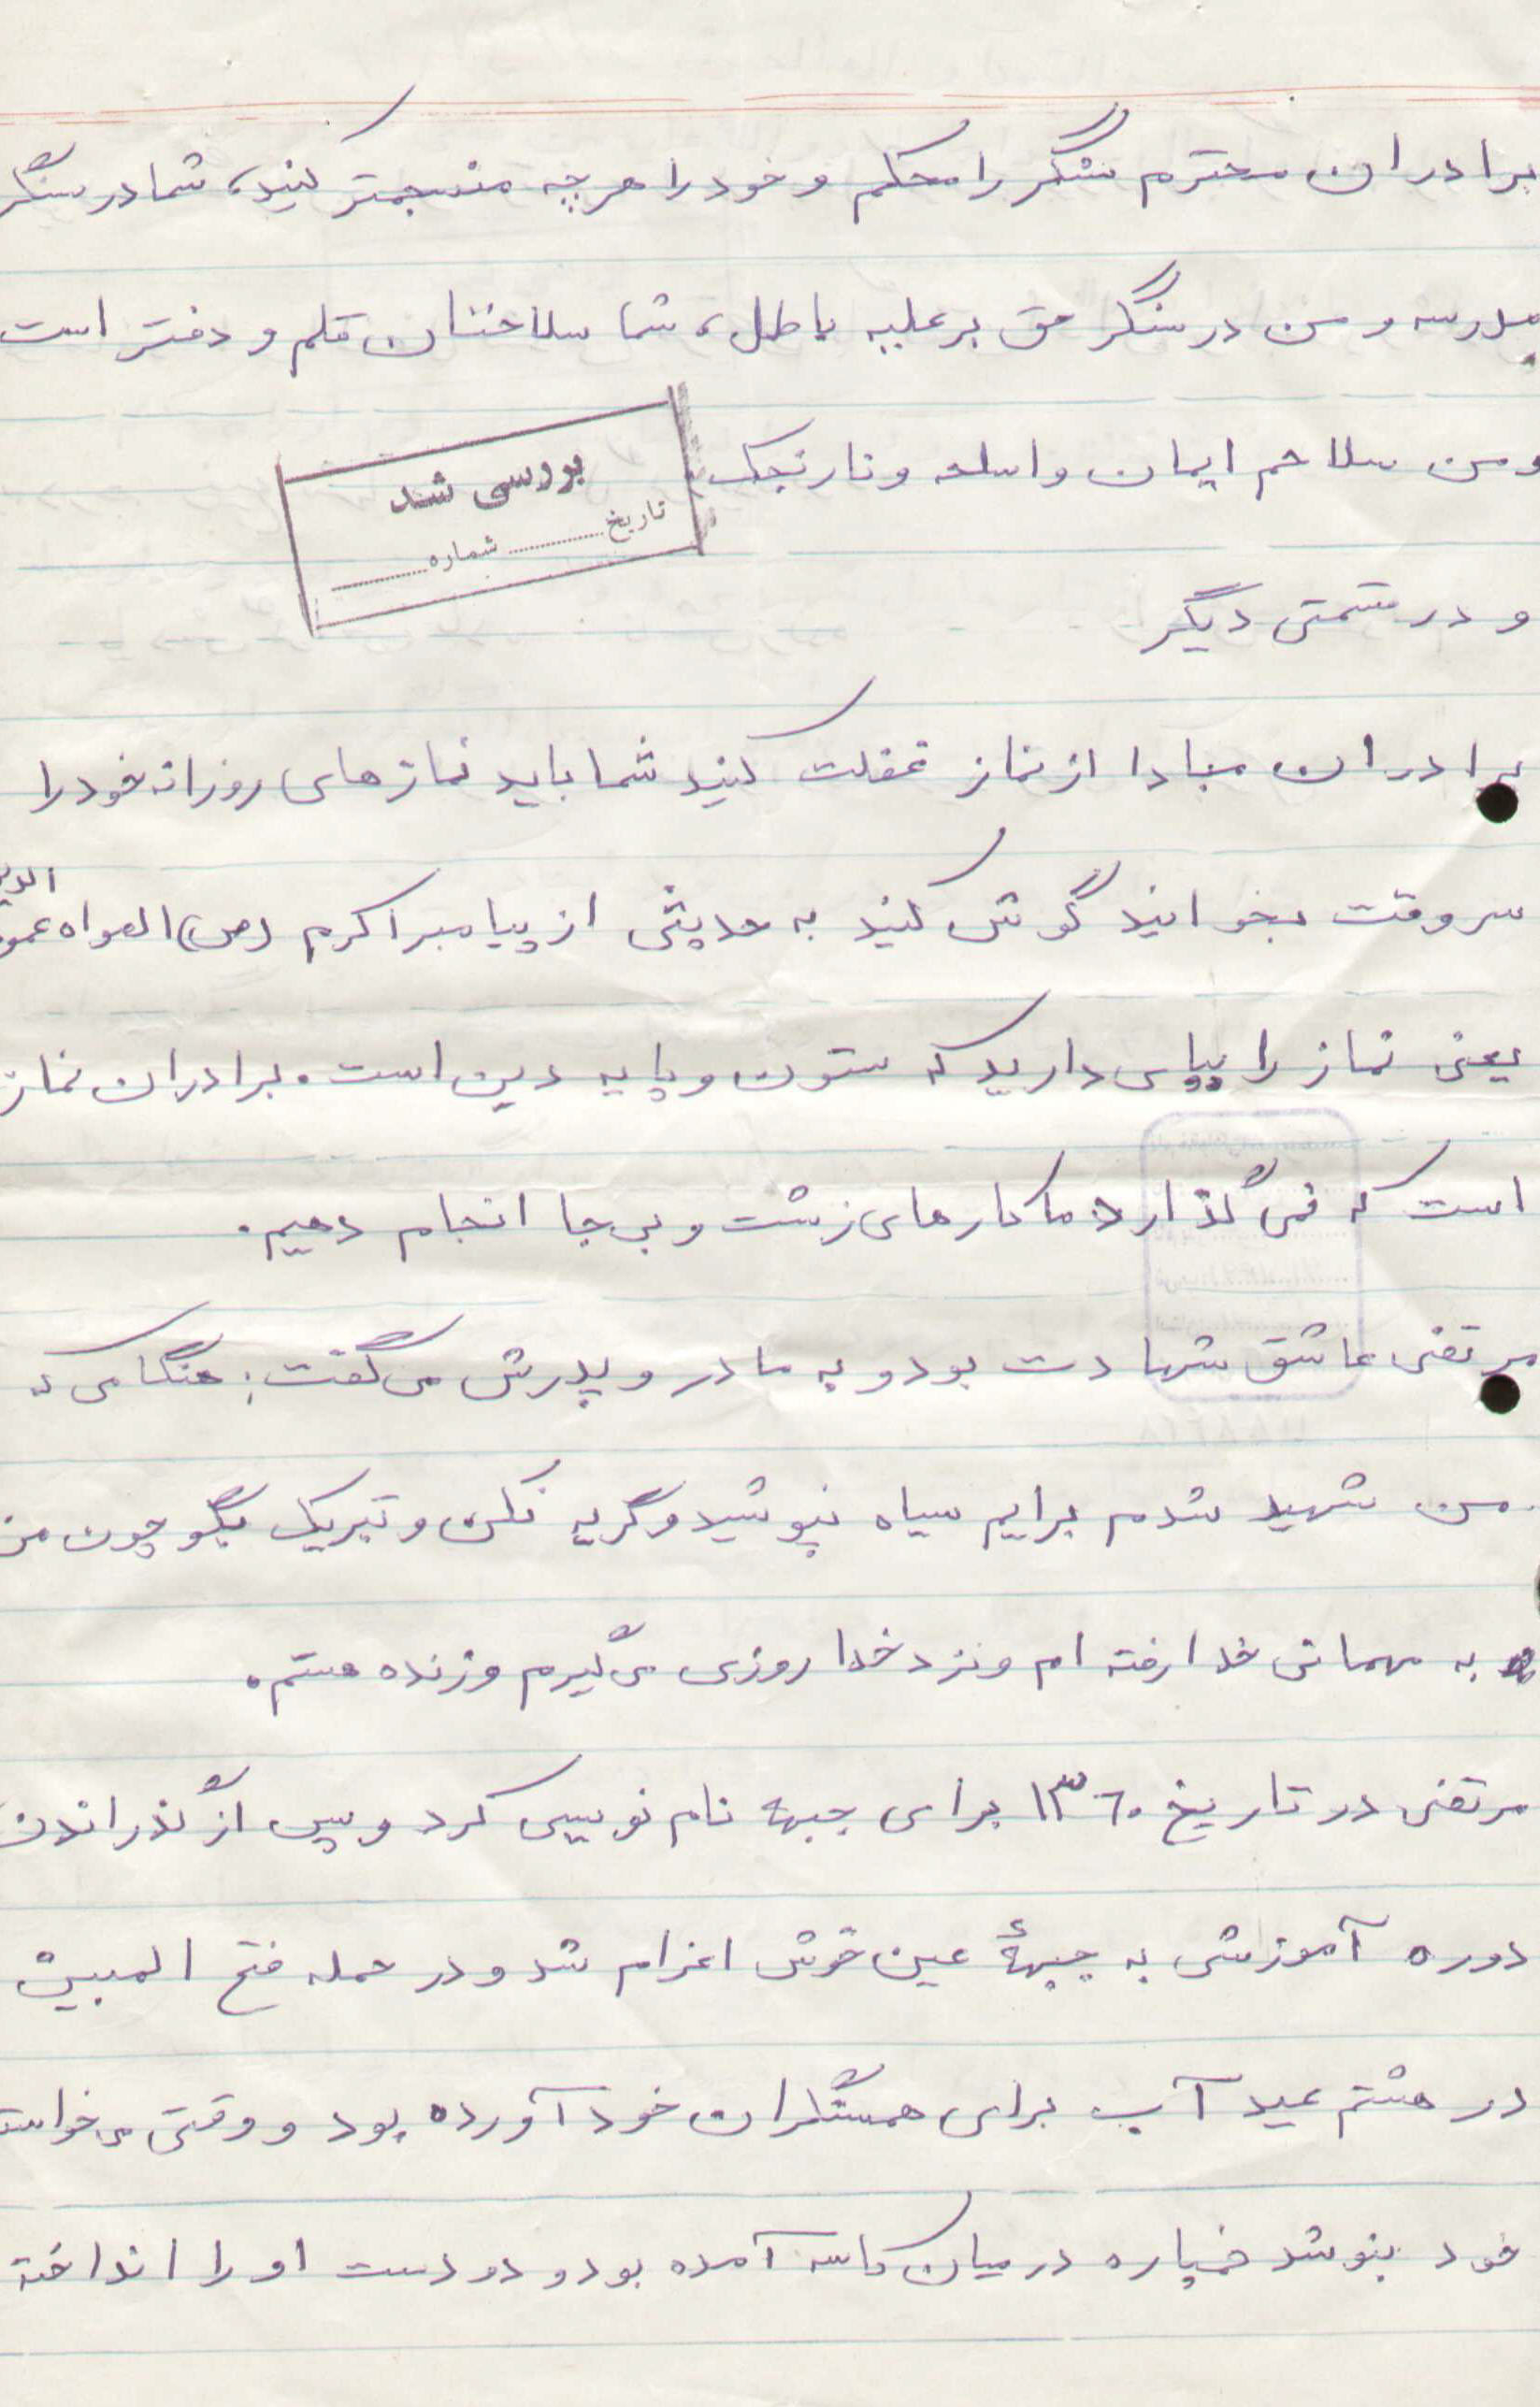 برادران محترم سنگر را محکم و خود را هر چه منسجمتر کنید، شما در سنگر
مدرسه و من در سنگر حق بر علیه باطل، شما سلاحتان قلم و دفتر است
و من سلاحم ایمان و اسلحه و نارنجک
بررسی شد
تاریخ ............ شماره ............
و در قسمتی دیگر
برادران مبادا از نماز غفلت کنید شما باید نمازهای روزانه خود را
سر وقت بخوانید گوش کنید به حدیثی از پیامبر اکرم (ص) الصواه عمود الدین
یعنی نماز را بپای دارید که ستون و پایه دین است. برادران نماز
است که نمی گذارد ما کارهای زشت و بی جا انجام دهیم.
مرتضی عاشق شهادت بود و به مادر و پدرش می گفت: هنگامی که
من شهید شدم برایم سیاه نپوشید و گریه نکن و تبریک بگو چون من
به مهمانی خدا رفته ام و نزد خدا روزی می گیرم و زنده هستم.
مرتضی در تاریخ ۱۳۶۰ برای جبهه نام نویسی کرد و پس از گذراندن
دوره آموزشی به جبههٔ عین خوش اعزام شد و در حمله فتح المبین
در هشتم عید آب برای همسنگران خود آورده بود و وقتی می خواست
خود بنوشد خمپاره در میان کاسه آمده بود و دو دست او را انداخته